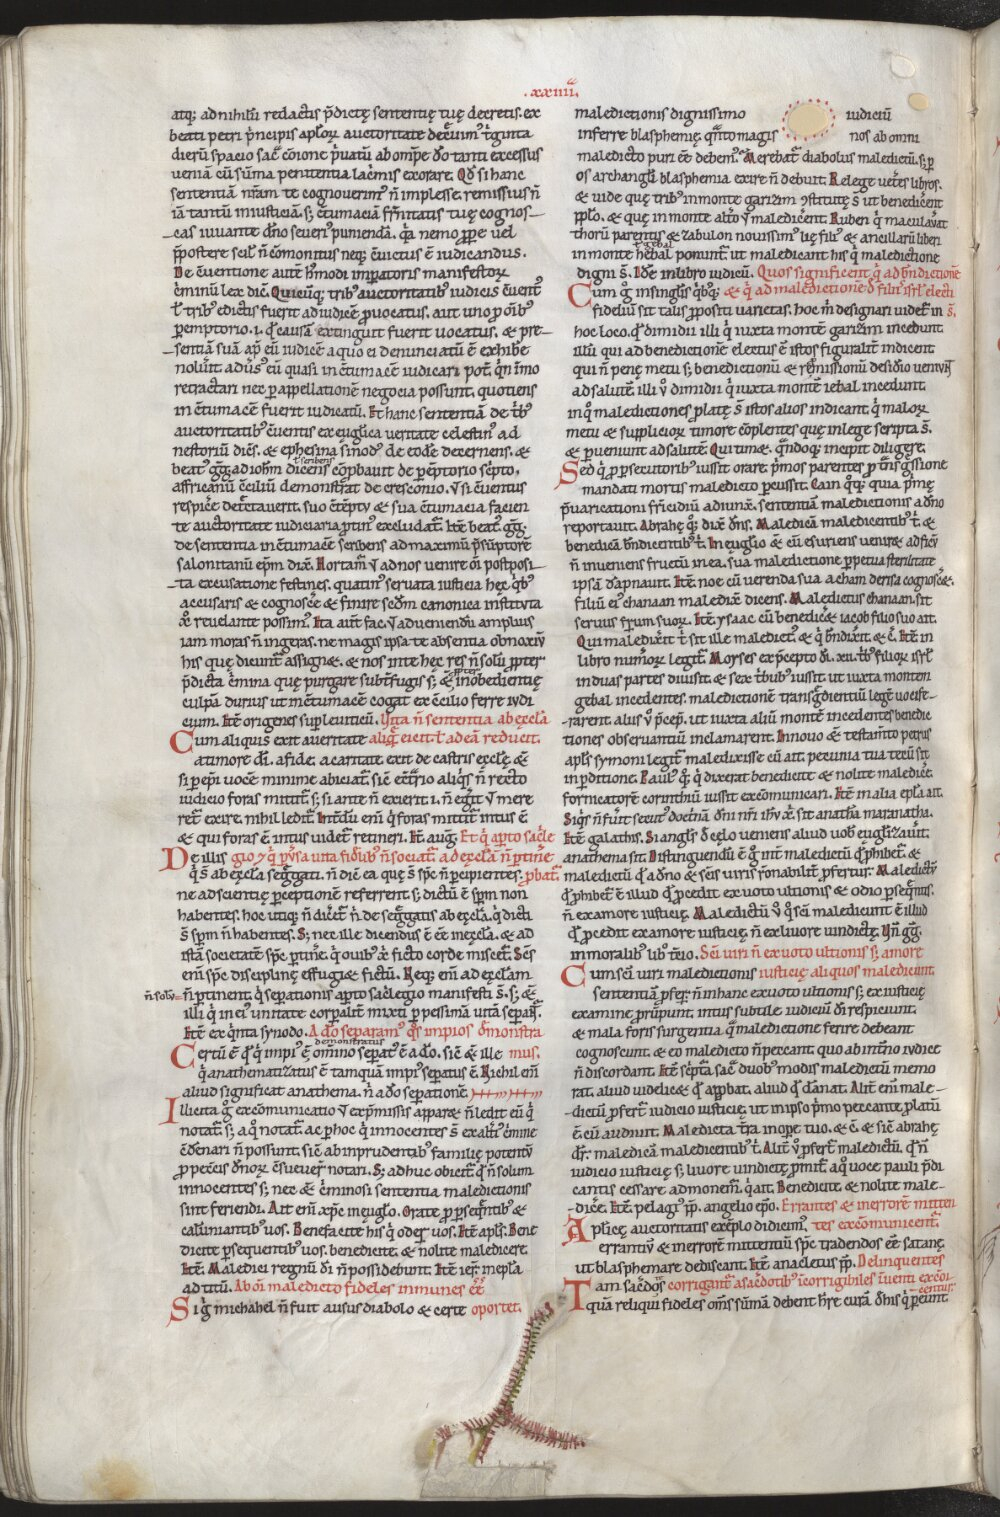 .xxiiii.
atq; ad nihilū redactis p̄dictę sententię tuę decretis. ex
beati petri p̄ncipis apl̄oꝝ auctoritate decreuim᾽ t͛ginta
dierū spacio sac̄ cōione p̄uatū ab omp̄e dō tanti excessus
ueniā cū sūma penitentia lac̄mis exorare. Qđ si hanc
sententiā nr̄am te cognouerim᾽ n̄ implesse. remissius n̄
iā tantū iniusticiā. s; ꝯtumaciā fr̄nitatis tuę cognos-
cas iuuante dn̄o seueri᾽ puniendā. q̄a nemo ꝓpe uel
p̄postere seił n̄ cōmonitus neq; ꝯuictus ē iudicandus.
De ꝯuentione autē h᾽modi imp̄atoris manifestoꝝ
ꝯminū lex dic̄. Quicūq; trib᾽ auctoritatib᾽ iudicis ꝯuent᾽
ł trib᾽ edictis fuerit ad iudicē ꝓuocatus. aut uno ꝓ oīb᾽
ꝑemptorio .i. q͛ causā extinguit fuerit uocatus. & pre-
sentiā suā ap̄ eū iudicē a quo ei denunciatū ē exhibe
noluīt. aduers᾽ eū quasi in ꝯtumacē iudicari pot̄. q̄n īmo
retractari nec ꝑ appellationē negocia possunt. quotiens
in ꝯtumacē fuerit iudicatū. Et hanc sententiā de tb᾽
auctoritatib᾽ ꝯuentis ex euglīca ueritate celestin᾽ ad
nestoriū dic̄s. & ephesina sinod᾽ de eodē decernens. &
beat᾽ gḡ. ad ioħm dicens cōpbauit de ꝑemptorio sc̄pto.
ł scribens
affricanū ꝯciliū demonstrat de cresconio. Vsi ꝯuentus
respic̄e detc̄tauerit. suo ꝯtēptu & sua ꝯtumacia facien
te auctoritate iudiciaria ꝓtin᾽ excludat̄. Itē beat᾽ gḡ.
de sententia in ꝯtumacē scribens ad maximū p̄sūptorē
salonitanū ep̄m dix̄. Hortam᾽ ū ad nos uenire oī postposi-
ta excusatione festines. quatin᾽ seruata iusticia hęc q̄b᾽
accusaris & cognosc̄e & finire sc̄dm canonica instituta
x͛ reuelante possim᾽. Ita aut̄ fac. ū adueniendū amplius
iam moras n̄ ingeras. ne magis ipsa te absentia obnoxiū
his quę dicunt̄ assignæ. & nos inte hęc res n̄ solū ꝓpter
p̄dicta ꝯmina que purgare subt͛fugis s; & inobedientię
culpā durius ut in ꝯtumacē cogat ex ꝯcilio ferre iudi
cium. Itē origenes sup leuiticū. Iusta n̄ sententia ab ęccl̄a
Cum aliquis exit a ueritate aliq̄ eicit ł ad eā reducit.
a timore dī. a fide. a caritate exit de castris ęccl̄ę &
si ꝑ ep̄i uocē minime abiciat̄. sic̄ ꝯt͛rio aliq̄s n̄ recto
iudicio foras mittit̄. s; si ante n̄ exierit .i. n̄ egit ū mere
ret̄ exire. nihil ledit̄. Int̄dū enī q̄ foras mittit̄ intus ē
& qui foras ē intus uidet̄ retineri. Itē aug. Et q̄ apto sac̄le
De illis gio. & q̄ ꝑuersa uita fidelib᾽ n̄ sociat̄ ad ęccl̄a n̄ ptine
q̄ s̄ ab ęccl̄a segͣgati. n̄ dic̄ ea que s̄ sp̄c n̄ ꝑcipientes. pbat̄.
ne ad scientię ꝑceptionē referrent̄. s; dictū ē sp̄m non
habentes. hoc utiq; n̄ dicēt̄ n̄ de segͣgatis ab ęccl̄a. q̄ dicti
s̄ sp̄m n̄ habentes. S; nec ille dicendus ē ēe in ęccl̄a. & ad
istā societatē sp̄c ptinē. q̄ ouib᾽ x͛ ficto corde miscet̄. Sc̄s
enī sp̄c disciplinę effugiet fictū. Neq; enī ad ęccl̄am
n̄ solū = n̄ ptinent. q̄ separationis apto sac̄legio manifesti s̄. s; &
illi q̄ in ei᾽ unitate corpalit̄ mixti ꝑ pessimā uitā sepant̄.
Itē ex q̄nta synodo. A do separam᾽ q̄s impios dmonstra
demonstratus
Certū ē q͛d q̄ impi᾽ ē omīno sepat᾽ ē a do. sic̄ & ille mus.
q̄ anathematizatus ē tamquā impi᾽ sepatus ē. Nichil enī
aliud significat anathema. n̄ a do sepationē.
Illicita g͛ excōmunicatio ū ex p̄missis appare n̄ ledit eū q̄
notat̄. s; a q͛ notat̄. ac ꝑ hoc q̄ innocentes s̄ ex alt͛i᾽ ꝯmine
ꝯdēnari n̄ possunt. sic̄ ab inprudentib᾽ familię potentū
ꝓ peccatis dn̄oꝝ ꝯsueuer̄ notari. S; ad huc obicit̄ q͛d n̄ solum
innocentes s; nec & ꝯminosi sententia maledictionis
sint feriendi. Ait enī xp̄c in euglo. Orate ꝓ ꝑseq̄ntib᾽ &
calūniantib᾽ uos. Benefacite his q̄ oder̄ uos. Itē apl̄s. Bene
dicite ꝑsequentib᾽ uos. benedicite. & nolite maledicere.
Itē. Maledici regnū dī n̄ possidebunt. Itē ier̄. in epl̄a
ad titū. Ab oī maledicto fideles inmunes ēē
Si g̊ michahel n̄ fuit ausus diabolo & certe oportet.
maledictionis dignissimo iudiciū
inferre blasphemię. q̄nto magis nos ab omni
maledicto puri ēe debem᾽. Merebat̄ diabolus maledictū. s; ꝑ
os archangli blasphemia exire n̄ debuit. Relege uet̄es libros.
& uide que trib᾽ in monte garizim ꝯstitutę s̄ ut benedic̄ent
ppl̄o. & que in monte alt͛o ū maledic̄ent. Ruben q̄ maculauat
thorū parentis & zabulon nouissim᾽ lię fili᾽ & ancillarū liberi
ł gebal
in monte hebal ponunt̄ ut maledicant his q̄ maledictione
digni s̄. Idē in libro iudicū. Quos significent q̄ ad bn̄dictione
Cum g͛ in singlis q̄bq; & q̄ ad maledictionē d filii isrl̄ electi
fideliū sit talis ꝓpositi uarietas. hoc m͛ designari uidet̄ in s̄.
hoc loco. q͛d dimidii illi q̄ iuxta montē garizim incedunt.
illū qui ad benedictionē electus ē istos figuralit̄ indicent
qui n̄ penę metu s; benedictionū & rep̄missionū desidio ueniunt
ad salutē. illi ū dimidii q̄ iuxta montē iebal incedunt.
in q͛ maledictiones platę s̄ istos alios indicant. q̄ maloꝝ
metu & supplicioꝝ timore cōplentes quę in lege scripta s̄.
& ꝑueniunt ad salutē. Qui timæ. q̄ndoq; incipit diligere.
Sed q̄ ꝓ ꝑsecutorib᾽ iussit orare. p̄mos parentes ꝓ t͛nsgͣssione
mandati mortis maledicto ꝑcussit. Cain q͛q; quia p̄mę
p̄uaricationi fr̄icidiū adiunx̄. sententiā maledictionis a dn̄o
reportauit. Abrahę q͛; dix̄ dn̄s. Maledicā maledicentib᾽ t͛. &
benedicā bn̄dicentib᾽ t͛. In euglio & cū esuriens uenire ad ficū
n̄ inueniens fructū in ea. sua maledictione ꝑpetua sterilitate
ipsā dāpnauit. Itē noe cū uerenda sua a cham derisa cognosc̄et.
filiū ei᾽ chanaan maledix̄ dicens. Maledictus chanaan. sit
seruus frūm suoꝝ. Itē. ysaac cū benedicͤet iacob filio suo ait.
Qui maledixͤit t͛ sit ille maledict᾽. & q̄ bn̄dixͤit. & c̄. Itē in
libro num͛oꝝ legit̄. Moyses ex p̄cepto dī. xii. tb᾽ filioꝝ isrl̄
in duas partes diuisit. & sex tͥbub᾽ iussit. ut iuxta montem
gebal incedentes. maledictionē transgͣdientiū legē uocife-
rarent. alius ū p̄cep̄. ut iuxta aliū montē incedentes benedic
tiones obseruantiū inclamarent. In nouo & testamto petrus
apl̄s symoni legit̄ maledixisse cū ait. pecunia tua tecū sit
in pditione. Paul᾽ q͛; q̄ dixerat benedicite & nolite maledic̄e.
fornicatorē corinthiū iussit excōmunicari. Itē in alia epl̄a ait.
Siq̄s n̄ fuit secut᾽ doctͥnā dn̄i nr̄i ihū x͛. sit anathā maranatha.
Itē galathis. Si angls̄ d celo ueniens aliud uob euglizauit.
anathema sit. Distinguendū ē g͛ int̄ maledictū q͛d phibet̄. &
maledictū q͛d a dn̄o & sc̄is uiris rōnabilit̄ ꝓfertur. Maledictū
q͛d phibet̄ ē illud q͛d ꝓcedit ex uoto ultionis & odio ꝑseq̄ntis.
n̄ ex amore iusticię. Maledictū ū q͛ sc̄i maledicunt ē illud
q͛d ꝓcedit ex amore iusticię n̄ ex liuore uindictę. Vn̄ gḡ.
in moralib᾽ lib᾽ tͨio. Sc̄i uiri n̄ ex uoto ultionis s; amore
Cum sc̄i uiri maledictionis iusticię aliquos maledicunt.
sententiā ꝓfer̄t. n̄ in hanc ex uoto ultionis s; ex iusticię
examine ꝓrūpunt. intus subtile iudiciū dī respiciunt.
& mala foris surgentia q̄ maledictione ferire debeant
cognoscunt. & eo maledicto n̄ peccant. quo ab int͛no iudice
n̄ discordant. Itē sc̄pta. sac̄ duob᾽ modis maledictū memo
rat. aliud uidelicet q͛d appbat. aliud q͛d dānat. Alit̄ enī male-
dictū ꝓfert̄ iudicio iusticię. ut in ipso p̄mo peccante platū
ē cū audiuit. Maledicta t͛ra in oꝑe tuo. & c̄. & sic̄ abrahę
dr̄. maledicā maledicentib᾽ t͛. Alit̄ ū ꝓfert̄ maledictū. q͛d n̄
iudicio iusticię s; liuore uindictę pmit̄. a q͛ uoce pauli p̄di
cantis cessare admonem᾽. q̄ ait. Benedicite & nolite male-
dic̄e. Itē pelagi᾽ p̄p. angelio ep̄o. Errantes & in errorē mitten
Aplīcę auctoritatis exēplo didicim᾽. tes excōmunicent̄.
errantiū & in errorē mittentiū sp̄c tradendos ēe satanę.
ut blasphemare dediscant. Itē anacletus p̄p. Delinquentes
Tam sac̄dos corrigant̄ a sac̄dotib᾽ īcorrigibiles īuenti excōi
quā reliqui fideles om̄s sūmā debent hr̄e curā d his q̄ pereunt. centur.